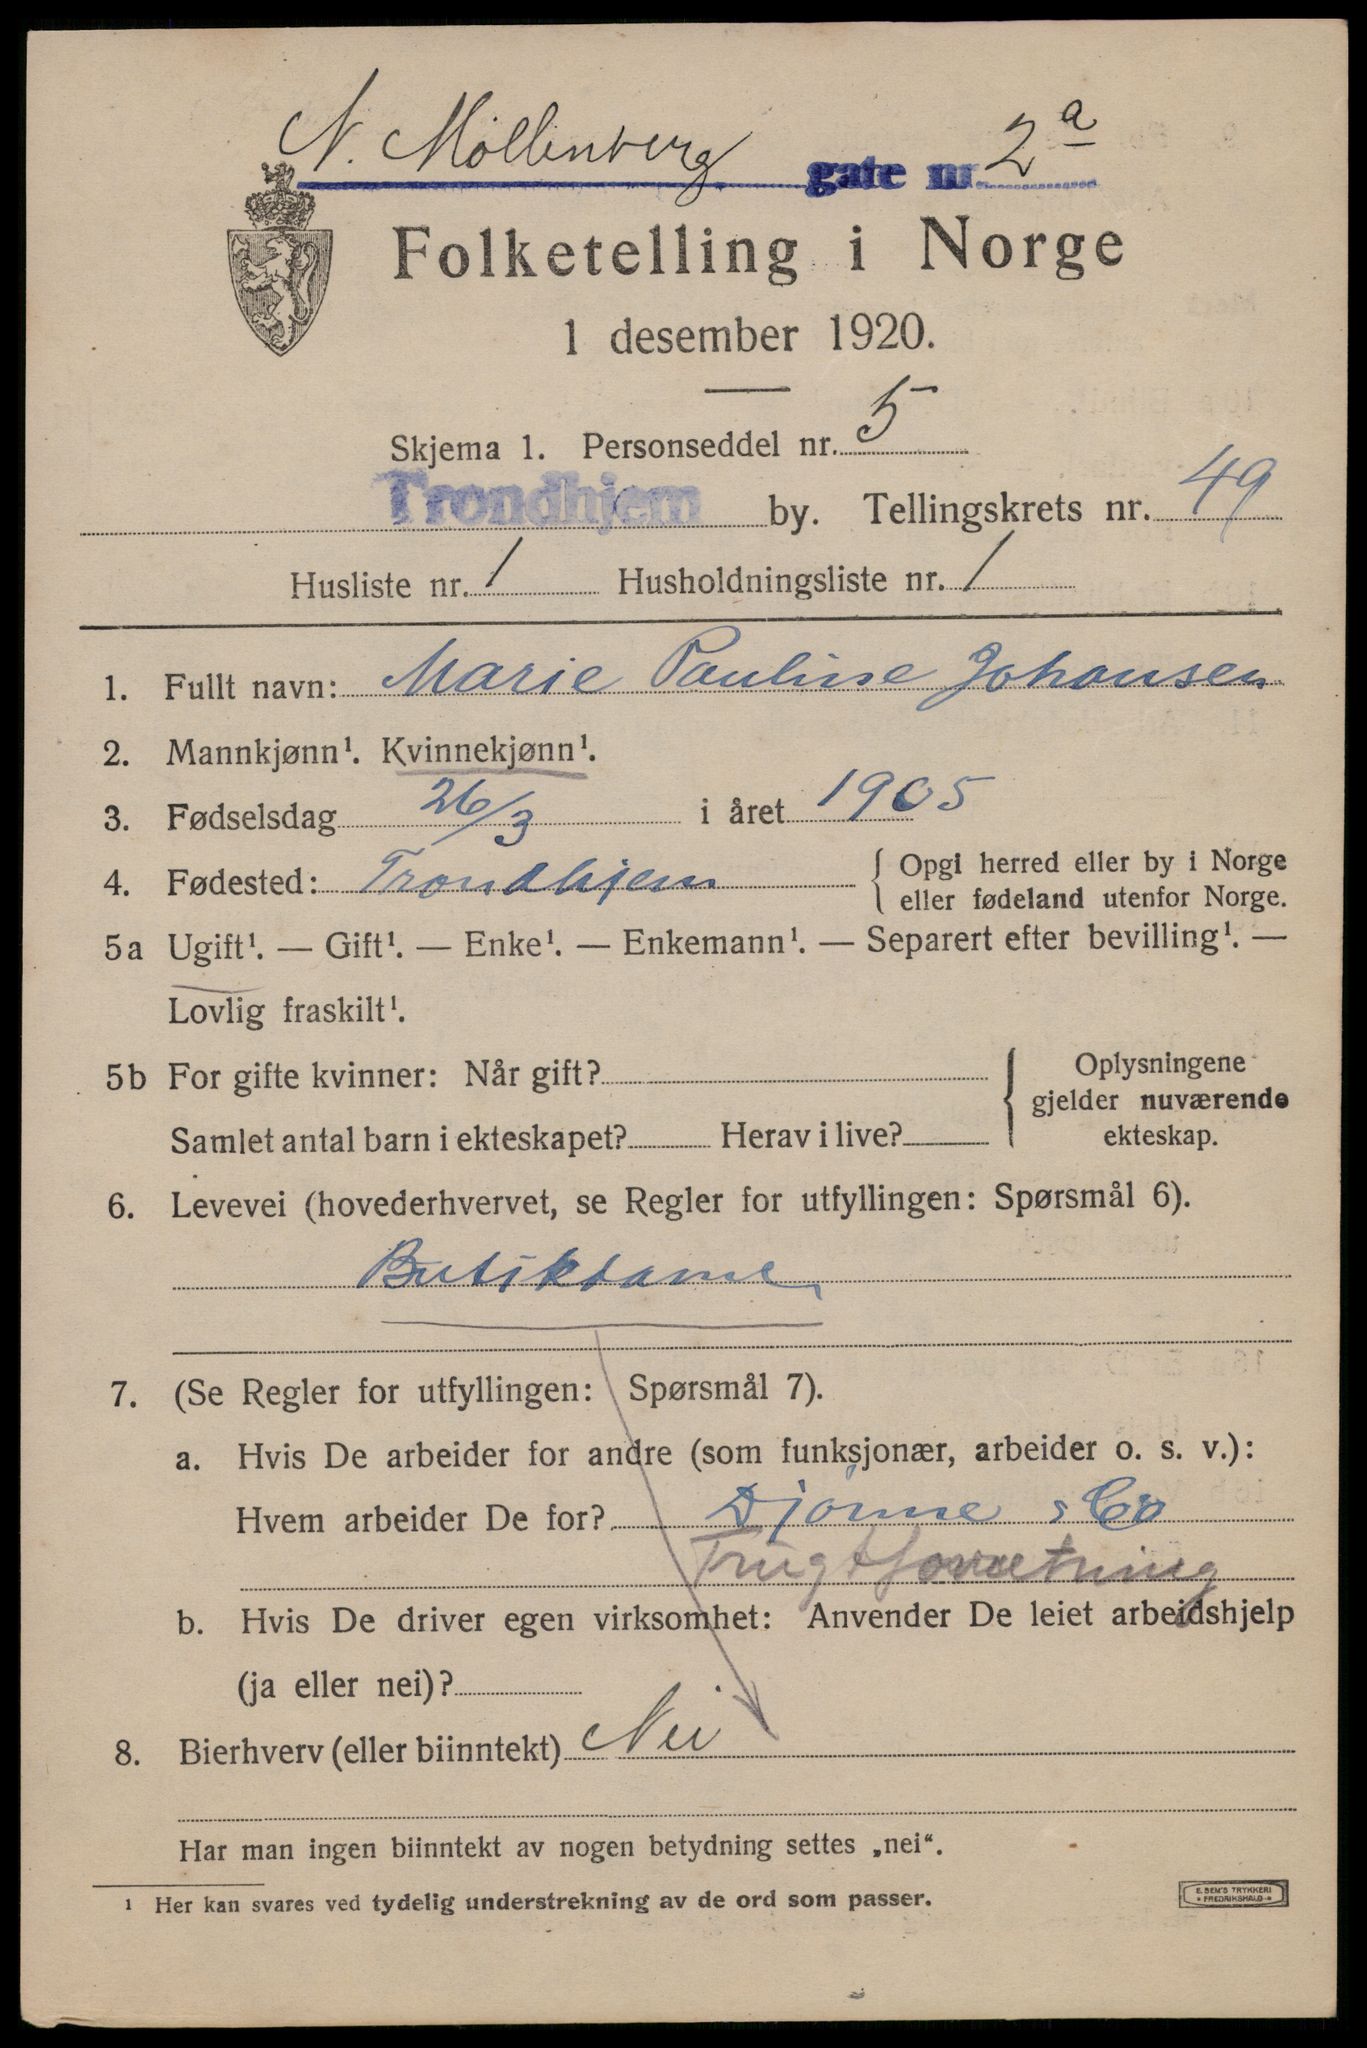 N. Møllenberg gate nr. 2 a
Folketelling i Norge
1 desember 1920.
Skjema 1. Personseddel nr. 5
Trondhjem by. Tellingskrets nr. 49
Husliste nr. 1 Husholdningsliste nr. 1
1. Fullt navn: Marie Pauline Johansen
2. Mannkjønn¹. Kvinnekjønn¹.
3. Fødselsdag 26/3 i året 1905
4. Fødested: Trondhjem { Opgi herred eller by i Norge
eller fødeland utenfor Norge.
5a Ugift¹. — Gift¹. — Enke¹. — Enkemann¹. — Separert efter bevilling¹. —
Lovlig fraskilt¹.
5b For gifte kvinner: Når gift? { Oplysningene
gjelder nuværende
Samlet antal barn i ekteskapet? Herav i live? ekteskap.
6. Levevei (hovederhvervet, se Regler for utfyllingen: Spørsmål 6).
Butikdame
7. (Se Regler for utfyllingen: Spørsmål 7).
a. Hvis De arbeider for andre (som funksjonær, arbeider o. s. v.):
Hvem arbeider De for? Djønne & Co
Frugtforretning
b. Hvis De driver egen virksomhet: Anvender De leiet arbeidshjelp
(ja eller nei)?
8. Bierhverv (eller biinntekt) Nei
Har man ingen biinntekt av nogen betydning settes „nei“.
¹ Her kan svares ved tydelig understrekning av de ord som passer.
E. SEM'S TRYKKERI
FREDRIKSHALD